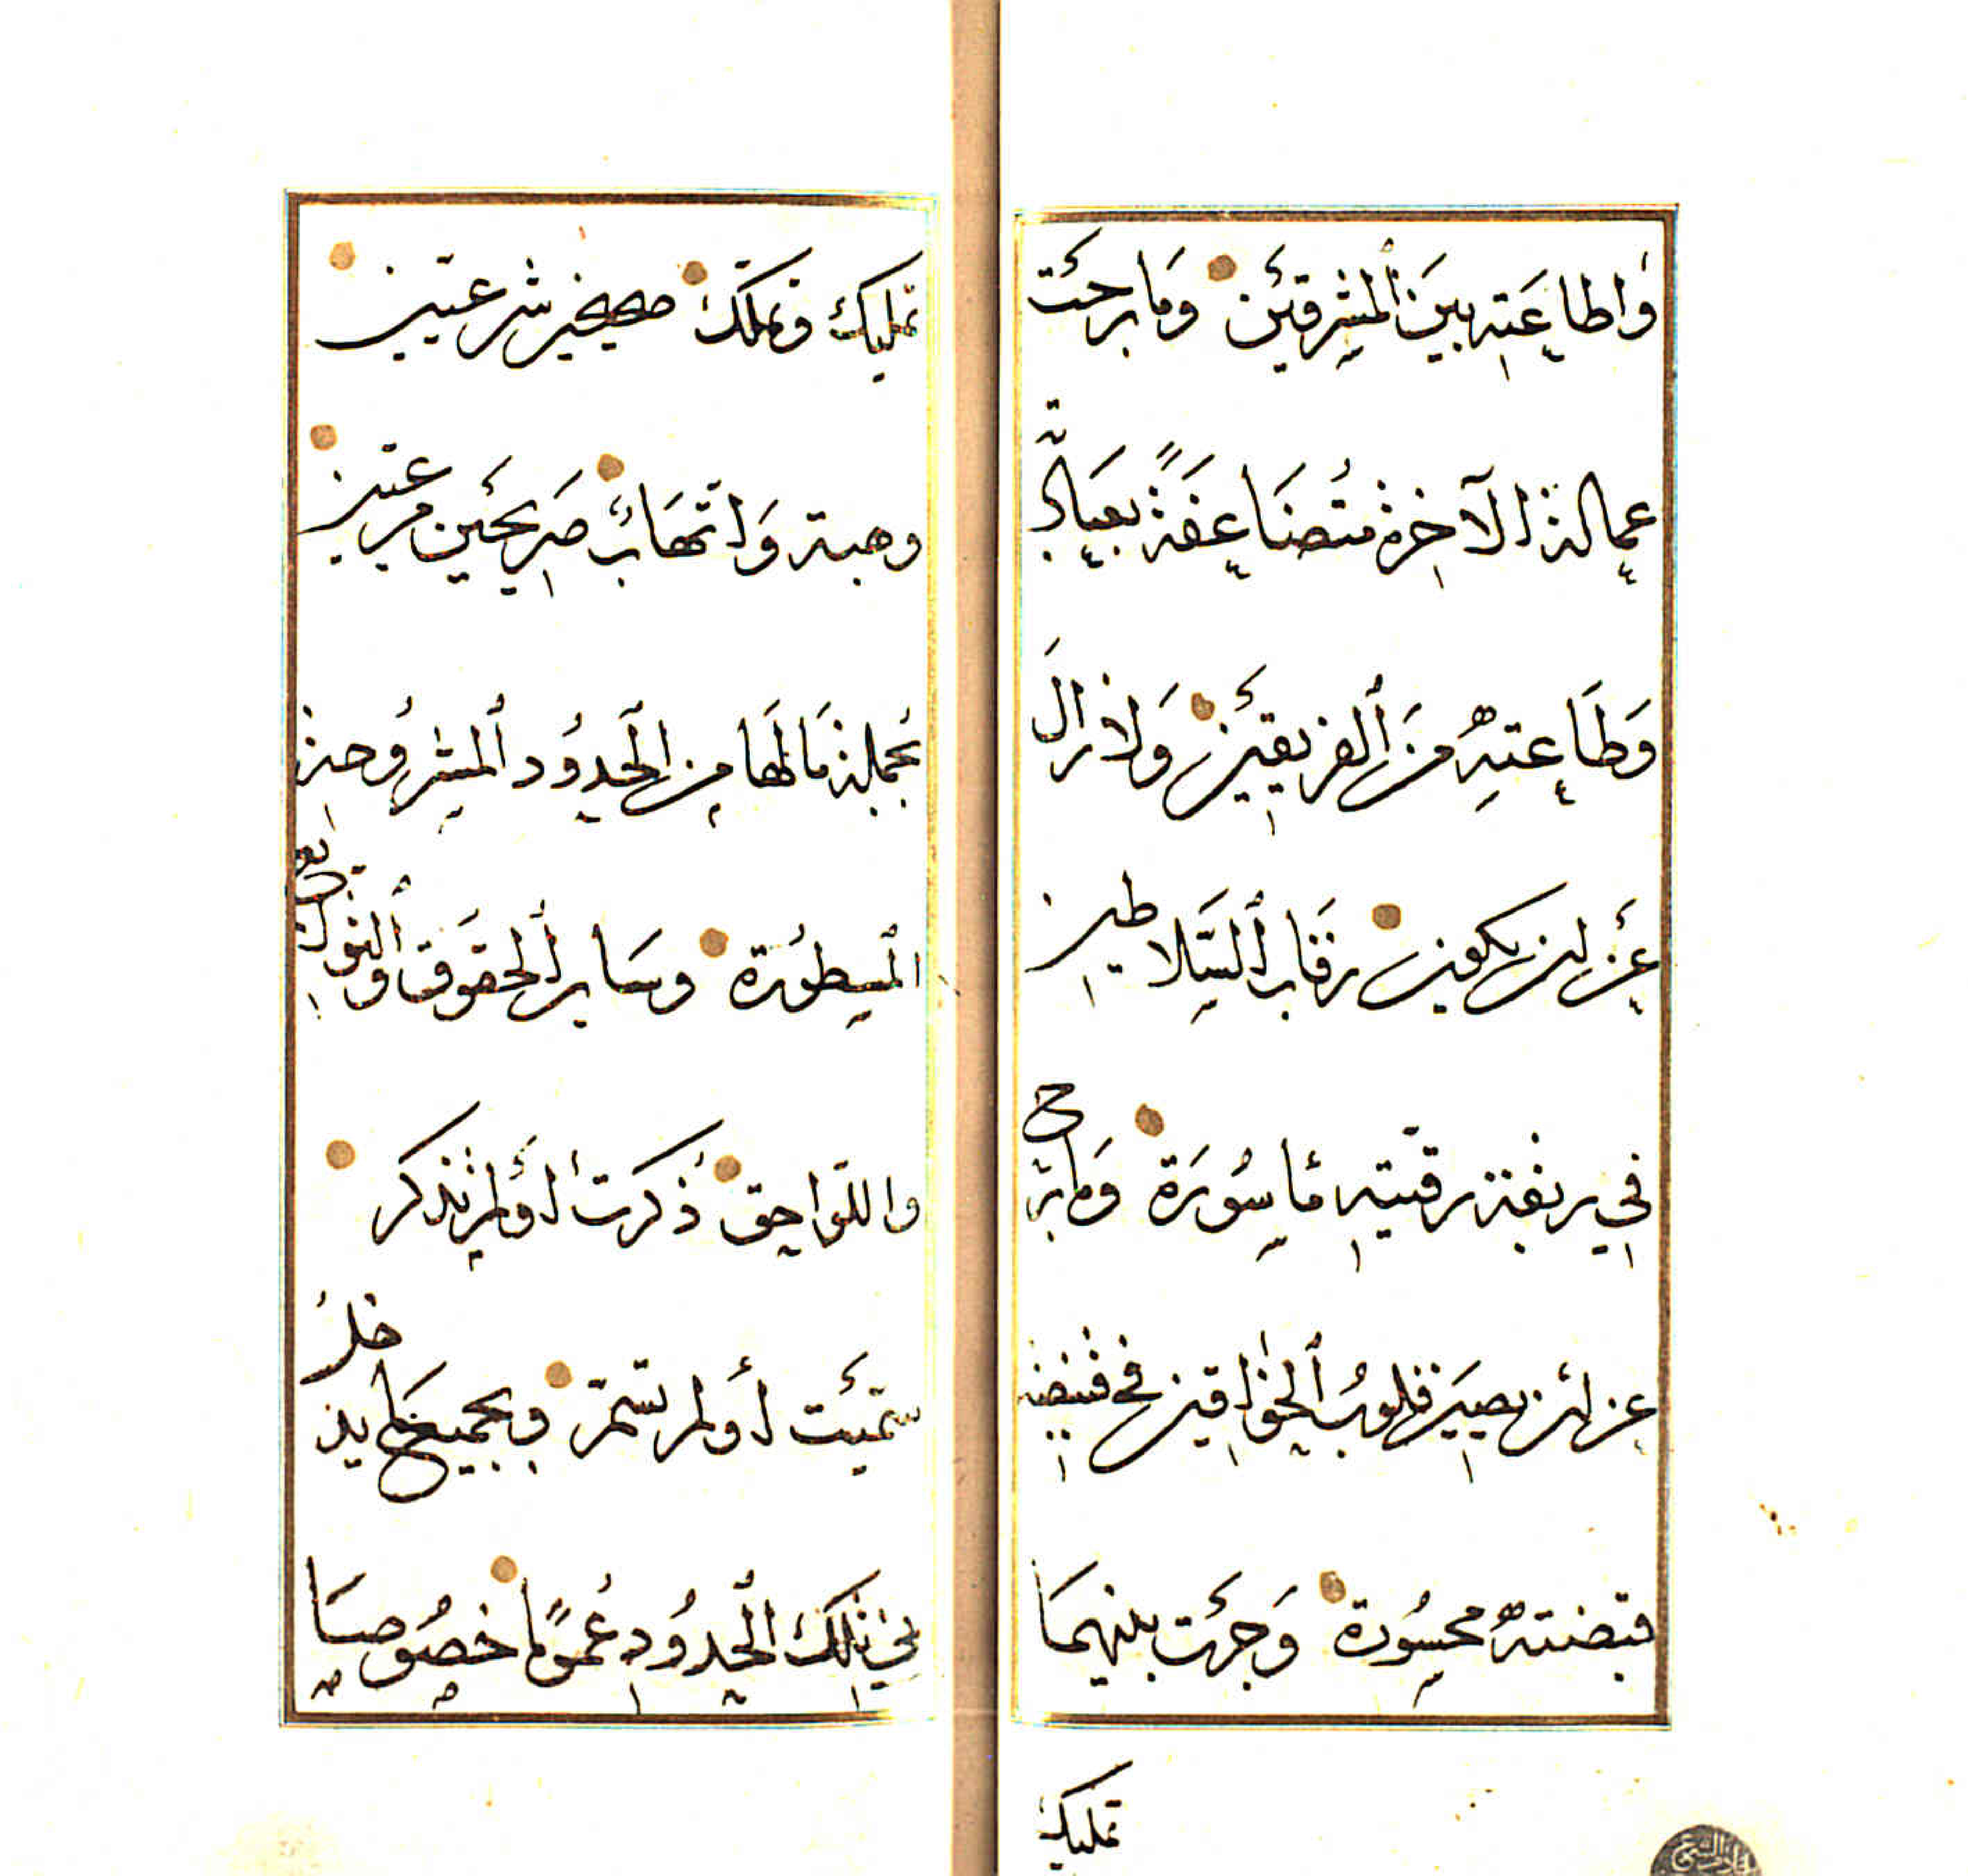 واطاعته بين المشرقين وما برحت
عمالة الآخرة متضاعفة بعبادته
وطاعته من الفريقين ولا زال
عن لن يكون رقاب السلاطين
في ربقة رقيته مأسورة وما برح
عن لن يصير قلوب الخواقين في قبضة
قبضته محسورة وجرت بينهما
تمليك
تمليك وتملك صحيحين شرعيين
وهبة واتهاب صريحين مرعيين
بجملة ما لها من الحدود المشروحة
المسطورة وساير الحقوق والتوابع
واللواحق ذكرت أو لم تذكر
سميت أو لم تسم وبجميع ما يدخل
في تلك الحدود عموما خصوصا